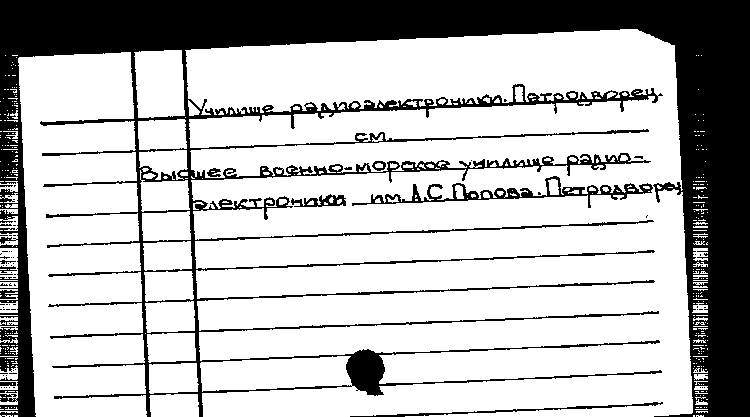 Училище радиоэлектроники. Петродворец.
см.
Высшее военно-морское училище радио-
электроники им. А.С. Попова. Петродворец